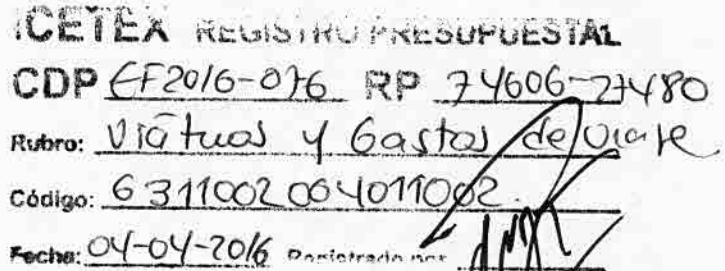 ICETEX REGISTRO PRESUPUESTAL
CDP EF2016-076 RP 74606-27480
Rubro: Viáticos y Gastos de viaje
Código: 6311002004011002
Fecha: 04-04-2016 Registrado por